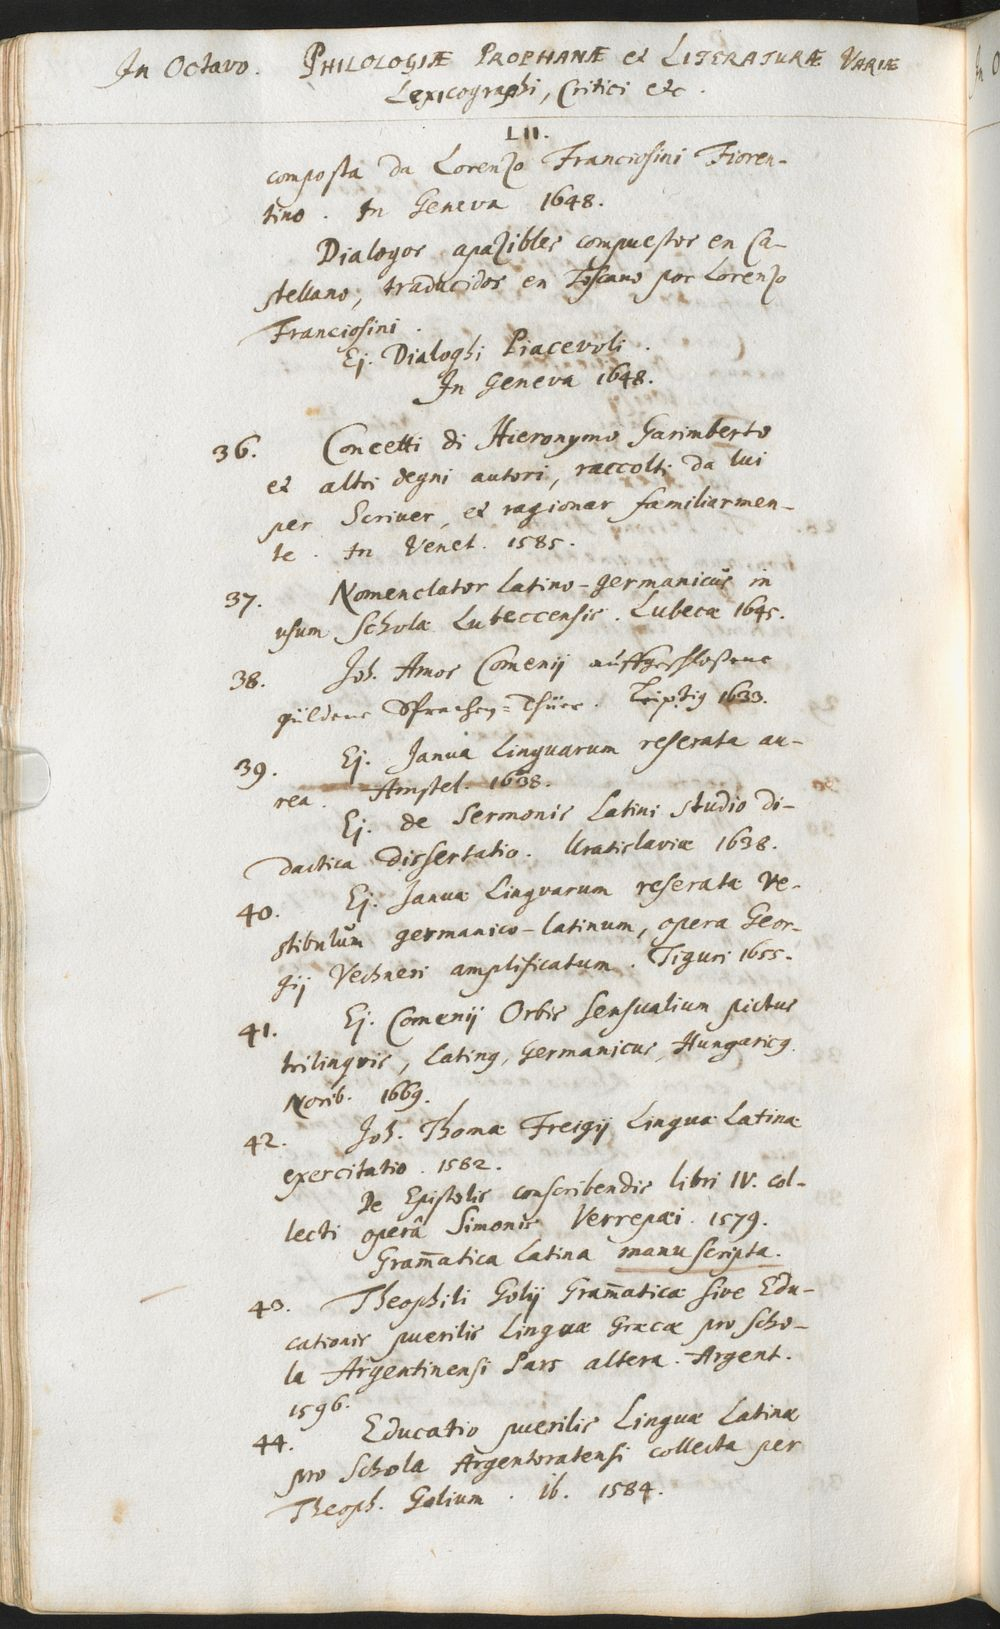 In Octavo. PHILOLOGIÆ PROPHANÆ et LITERATURÆ VARIÆ
Lexicographi, Critici etc.
LII.
composta da Lorenzo Franciosini Fioren-
tino. In Geneva 1648.
Dialogos apazibles compuestos en Ca-
stellano, traducidos en Toscano por Lorenzo
Franciosini.
Ej. Dialoghi Piacevoli.
In Geneva 1648.
36. Concetti di Hieronymo Garimberto
et altri degni autori, raccolti da lui
per Scriver, et ragionar familiarmen-
te. In Venet. 1585.
37. Nomenclator Latino-germanicus in
usum Scholæ Lubeccensis. Lubecæ 1645.
38. Joh. Amos Comenij auffgeschloßene
güldene Sprachen=Thüre. Leipzig 1633.
39. Ej. Janua Linguarum reserata au-
rea. Amstel. 1638.
Ej. de Sermonis Latini studio di-
dactica dissertatio. Uratislaviæ 1638.
40. Ej. Januæ Linguarum reseratæ Ve-
stibulum germanico-latinum, opera Geor-
gij Vechneri amplificatum. Tiguri 1655.
41. Ej. Comenij Orbis sensualium pictus
trilinguis, Latinꝰ, Germanicus, Hungaricꝰ.
Norib. 1669.
42. Joh. Thomæ Freigij Linguæ Latinæ
exercitatio. 1582.
De Epistolis conscribendis libri IV. col-
lecti operâ Simonis Verrepæi. 1579.
Gram̄atica Latina manuscripta.
43. Theophili Golij Gram̄aticæ sive Edu-
cationis puerilis Linguæ Græcæ pro Scho-
la Argentinensi Pars altera. Argent.
1596.
44. Educatio puerilis Linguæ Latinæ
pro Schola Argentoratensi collecta per
Theoph. Golium. ib. 1584.